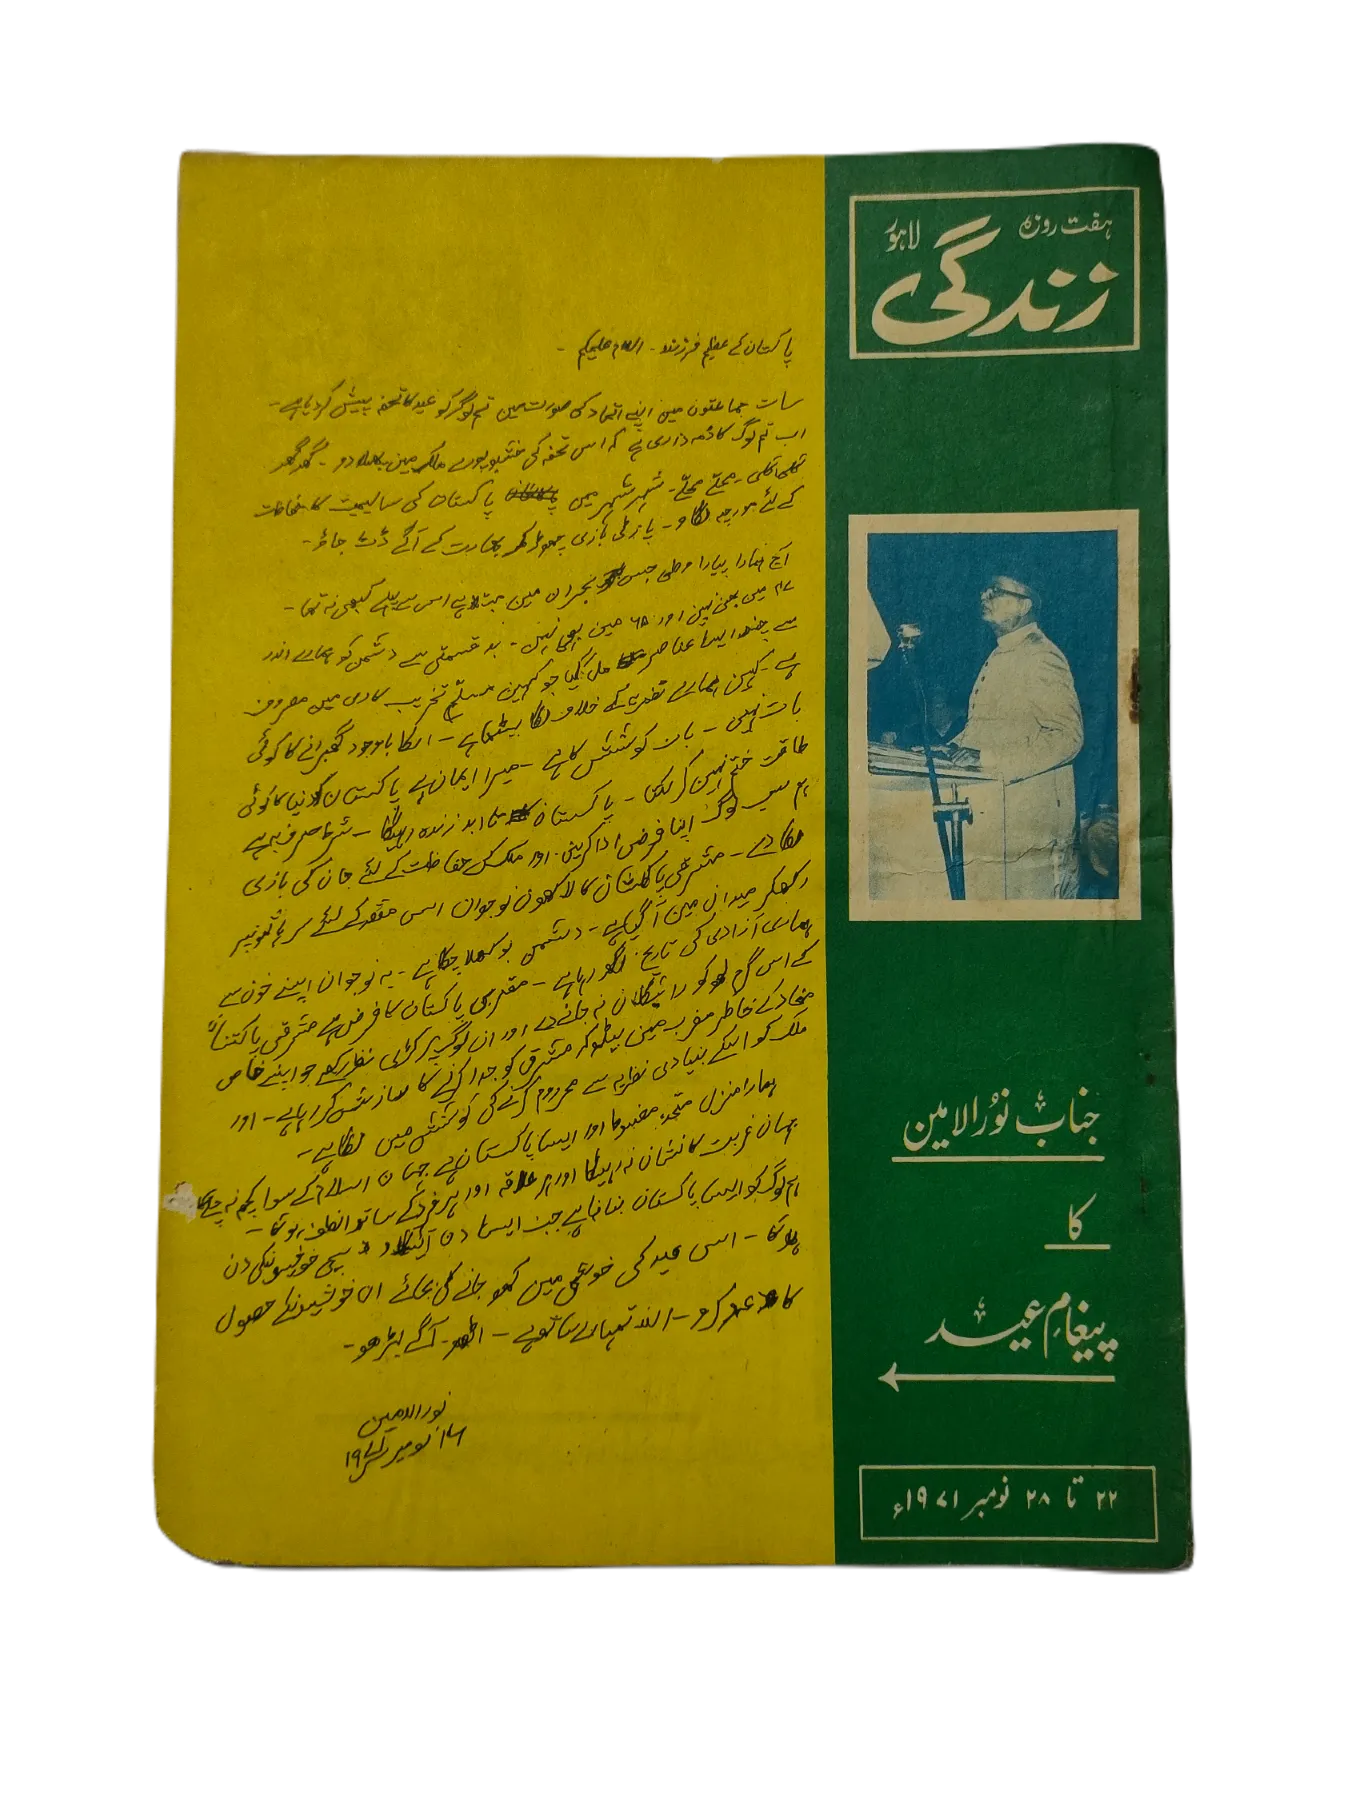 ہفت روزہ لاہور
زندگی
جناب نُورالامین
کا
پیغامِ عید
۲۲ تا ۲۸ نومبر ۱۹۷۱ء
پاکستان کے عظیم فرزند - السلام علیکم -
سات جماعتون مین اپنے اتحاد کی صورت مین تم لوگوں کو عید کا تحفہ پیش کر دیا ہے -
اب تم لوگ کا ذمہ داری ہے کہ اس تحفہ کی خشبو پورے ملک مین پھیلا دو - گھر گھر
محلے محلے - شہر شہر میں پاکستان کی سالیمیت کا حفاظت
کے لئے مورچہ لگاو - پارٹی بازی چھوڑ کر بھارت کے آگے ڈٹ جاؤ -
آج ہمارا پیارا وطن جس بحران مین مبتلا ہے اس سے پہلے کبھی نہ تھا -
۴۷ میں بھی نہین اور ۶۵ مین بھی نہین - بد قسمتی سے دشمن کو ہمارے اندر
سے چند ایسا عناصر مل گیا جو کہین مسلّح تخریب کاری میں مصروف
ہے - کہین ہمارے نظریہ کے خلاف لگا بیٹھا ہے - اسکا باوجود گھبرانے کا کوئی
بات نہین - بات کوشش کا ہے - میرا ایمان ہے پاکستان کو دنیا کا کوئی
طاقت ختم نہین کر سکتا - پاکستان تا ابد زندہ رہیگا - شرط صرف یہ ہے
ہم سب لوگ اپنا فرض ادا کرین اور ملک کی حفاظت کے لئے جان کی بازی
لگا دے - مشرقی پاکستان کا لاکھون نوجوان اسی مقصد کے لئے سر پر
رکھکر میدان مین آ گیا ہے - دشمن بوکھلا چکا ہے - یہ نوجوان اپنے خون سے
ہماری آزادی کی تاریخ لکھ رہا ہے - مغربی پاکستان کا فرض ہے مشرقی پاکستان
کے اس گرم لہو کو رائیگان نہ جانے دے اور ان لوگ پر کڑی نظر رکھے جو اپنے خاص
مفاد کے خاطر مغرب مین بیٹھ کر مشرق کو جدا کرنے کا سازش کر رہا ہے - اور
ملک کو اسکے بنیادی نظریہ سے محروم کرنے کی کوشش میں لگا ہے -
ہمارا منزل متحد، مضبوط اور ایسا پاکستان ہے جہان اسلام کے سوا کچھ نہ چلے گا
جہان غربت کا نشان نہ رہیگا اور ہر علاقہ اور ہر فرد کے ساتھ انصاف ہوگا -
ہم لوگ کو ایسا پاکستان بنانا ہے جب ایسا دن آئیگا وہ سچی خوشیونکی دن
ہوگا - اسی عید کی خوشی مین کھو جانے کی بجائے ان خوشیونکے حصول
کا عہد کرو - اللہ تمہارے ساتھ ہے - اٹھو - آگے بڑھو -
نورالامین
۱۴ نومبر ۱۹۷۱